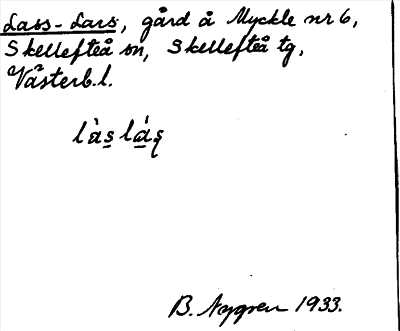 Lass-Lars, gård å Myckle nr 6,
Skellefteå sn, Skellefteå tg,
Västerb.l.
B. Nygren 1933.